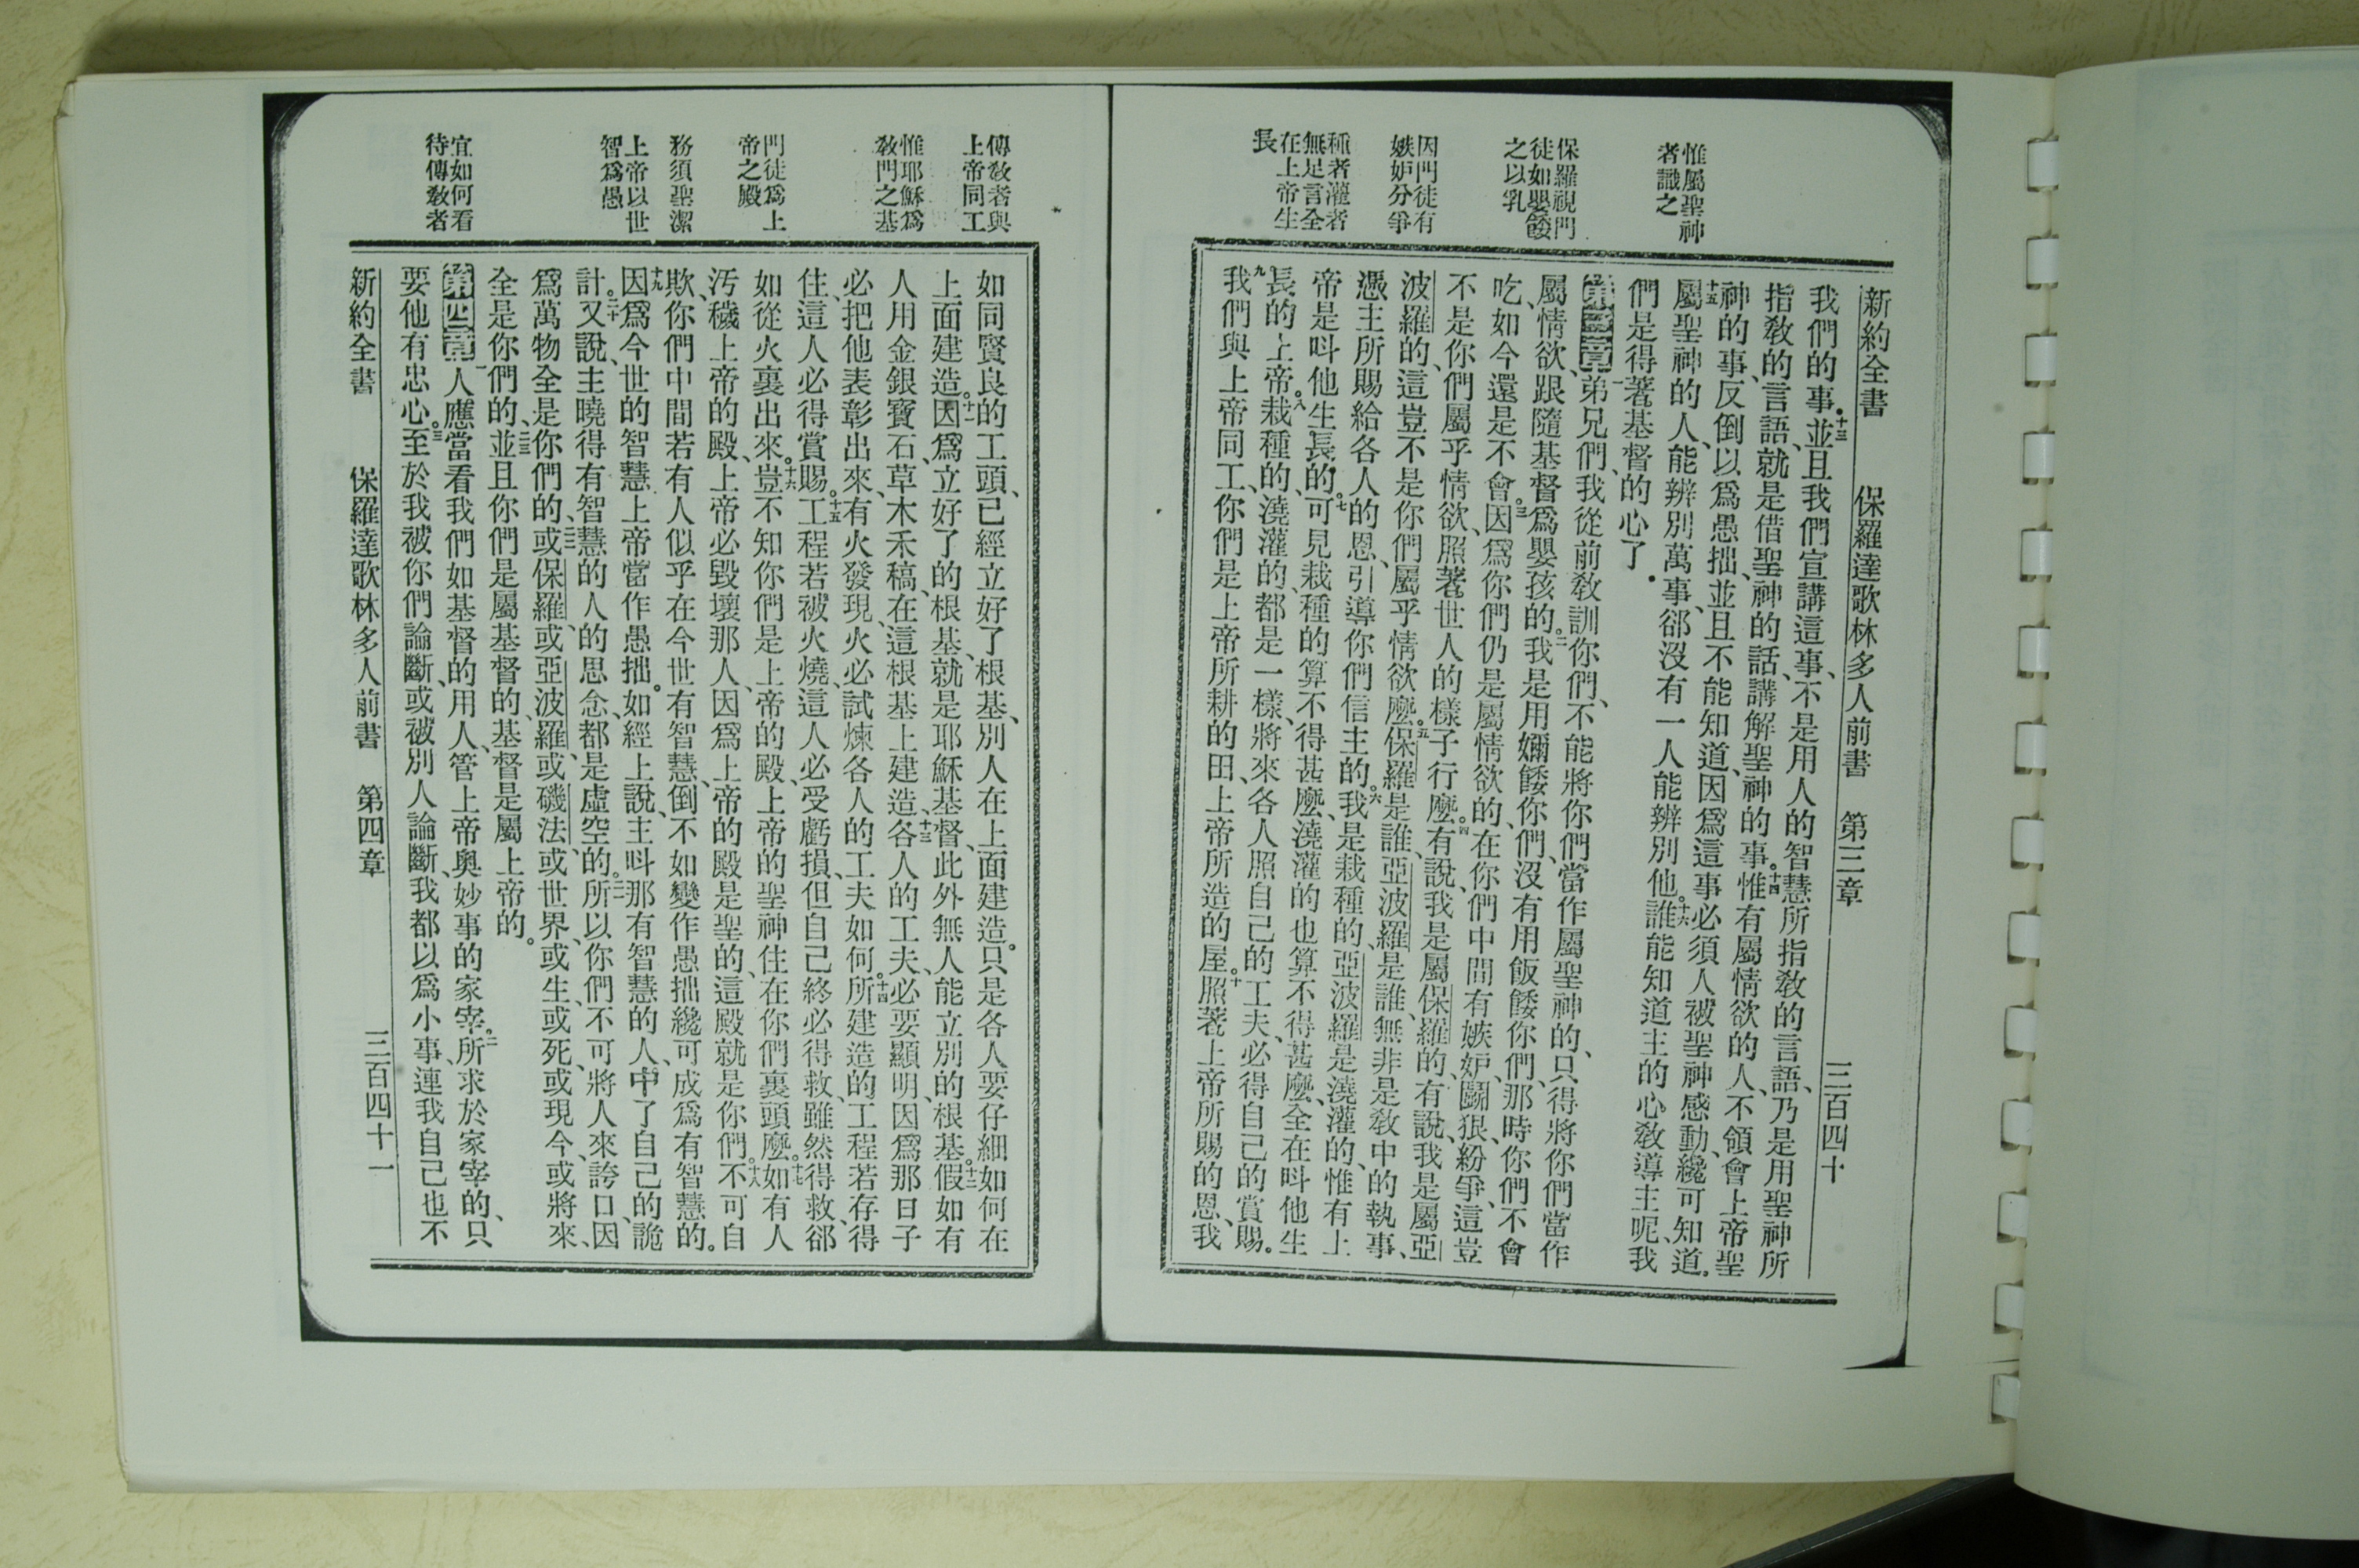 新約全書　保羅達歌林多人前書　第三章　三百四十
惟屬聖神
者識之
保羅視門
徒如嬰餧
之以乳
因門徒有
嫉妒分爭
種者灌者
無足言全
在上帝生
長
我們的事．十三並且我們宣講這事、不是用人的智慧所指敎的言語、乃是用聖神所
指敎的言語、就是借聖神的話、講解聖神的事。十四惟有屬情欲的人、不領會上帝聖
神的事、反倒以爲愚拙、並且不能知道、因爲這事必須人被聖神感動、纔可知道。
十五屬聖神的人、能辨別萬事、郤沒有一人能辨別他。十六誰能知道主的心敎導主呢、我
們是得著基督的心了．
第三章一弟兄們、我從前敎訓你們、不能將你們當作屬聖神的、只得將你們當作
屬情欲、跟隨基督爲嬰孩的。二我是用嬭餧你們、沒有用飯餧你們、那時你們不會
吃、如今還是不會。三因爲你們仍是屬情欲的、在你們中間有嫉妒、鬬狠、紛爭、這豈
不是你們屬乎情欲、照著世人的樣子行麽。四有說、我是屬保羅的、有說、我是屬亞
波羅的、這豈不是你們屬乎情欲麽。五保羅是誰、亞波羅是誰、無非是敎中的執事、
憑主所賜給各人的恩、引導你們信主的。六我是栽種的、亞波羅是澆灌的、惟有上
帝是呌他生長的。七可見栽種的算不得甚麽、澆灌的也算不得甚麽、全在呌他生
長的上帝。八栽種的、澆灌的、都是一樣、將來各人照自己的工夫、必得自己的賞賜。
九我們與上帝同工、你們是上帝所耕的田、上帝所造的屋。十照著上帝所賜的恩、我
傳敎者與
上帝同工
惟耶穌爲
敎門之基
門徒爲上
帝之殿
務須聖潔
上帝以世
智爲愚
宜如何看
待傳敎者
如同賢良的工頭、已經立好了根基、別人在上面建造。只是各人要仔細如何在
上面建造。十一因爲立好了的根基、就是耶穌基督、此外無人能立別的根基。十二假如有
人用金銀寶石、草木禾稿、在這根基上建造、十三各人的工夫、必要顯明、因爲那日子
必把他表彰出來、有火發現、火必試煉各人的工夫如何。十四所建造的工程若存得
住、這人必得賞賜。十五工程若被火燒、這人必受虧損、但自己終必得救、雖然得救、郤
如從火裏出來。十六豈不知你們是上帝的殿、上帝的聖神住在你們裏頭麽。十七如有人
汚穢上帝的殿、上帝必毀壞那人、因爲上帝的殿是聖的、這殿就是你們。十八不可自
欺、你們中間若有人似乎在今世有智慧、倒不如變作愚拙、纔可成爲有智慧的。
十九因爲今世的智慧、上帝當作愚拙。如經上說、主呌那有智慧的人、中了自己的詭
計。二十又說、主曉得有智慧的人的思念、都是虛空的。二一所以你們不可將人來誇口、因
爲萬物全是你們的、二二或保羅、或亞波羅、或磯法、或世界、或生、或死、或現今、或將來、
全是你們的、二三並且你們是屬基督的、基督是屬上帝的。
第四章一人應當看我們如基督的用人、管上帝奥妙事的家宰。二所求於家宰的、只
要他有忠心。三至於我被你們論斷、或被別人論斷、我都以爲小事、連我自己也不
新約全書　保羅達歌林多人前書　第四章　三百四十一